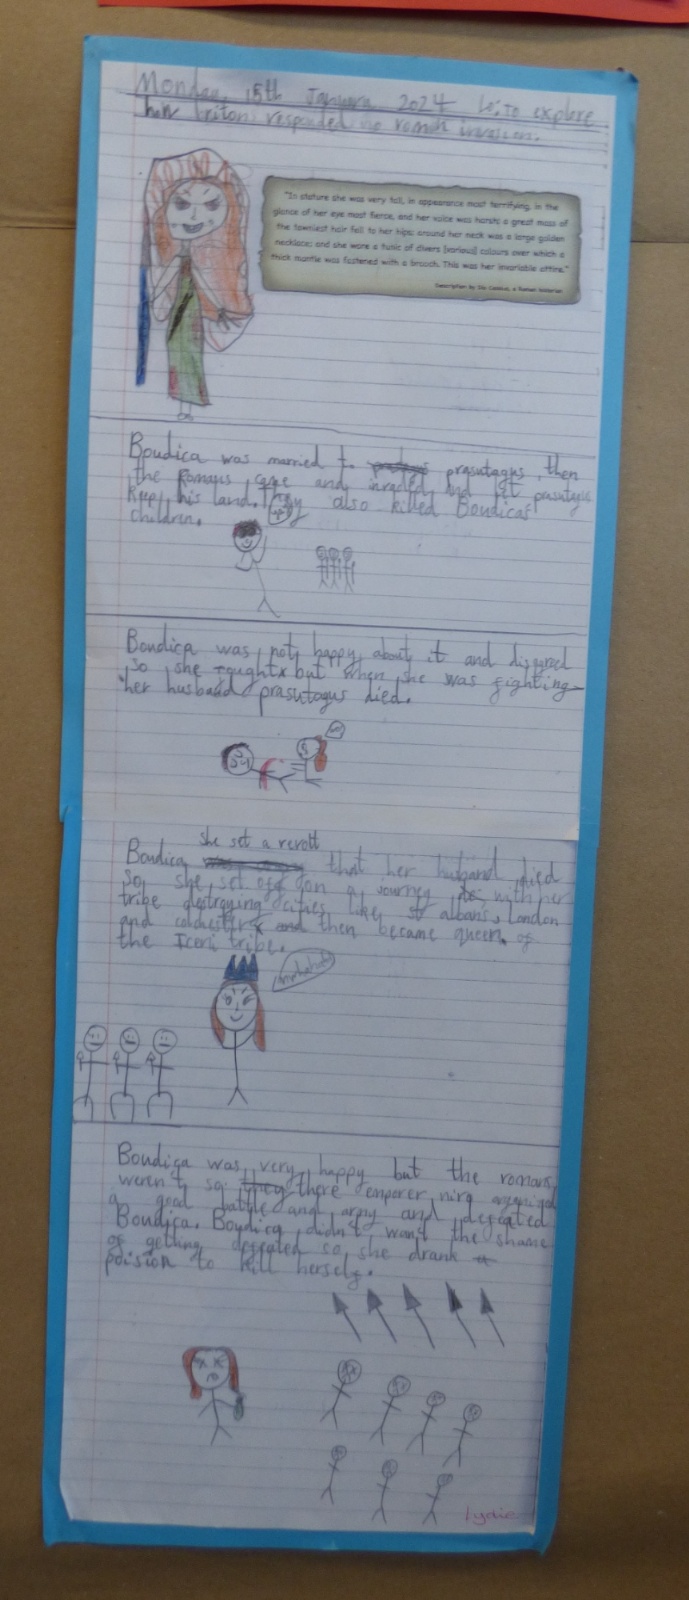 Monday, 15th January 2024 Lo: To explore
how britons responded to roman invasion.
"In stature she was very tall, in appearance most terrifying, in the
glance of her eye most fierce, and her voice was harsh; a great mass of
the tawniest hair fell to her hips; around her neck was a large golden
necklace; and she wore a tunic of divers [various] colours over which a
thick mantle was fastened with a brooch. This was her invariable attire."
Description by Dio Cassius, a Roman historian
Boudica was married to prasutagus, then
the Romans came and invaded, And let
keep his land. They also killed Boudicas
children.
Boudica was not happy about it and
so she fought but when she was fighting
her husband prasutagus died.
she set a revolt
Boudica that her husband died
so she set off on a journey with her
tribe destroying cities like St albans, London
and and then became queen. of
the Iceni tribe.
Boudica was very happy but the romans
weren't so they there emperer
a good battle and army and defeated
Boudica. Boudica didn't want the shame
of getting defeated so she drank
poision to kill herself.
Lydie